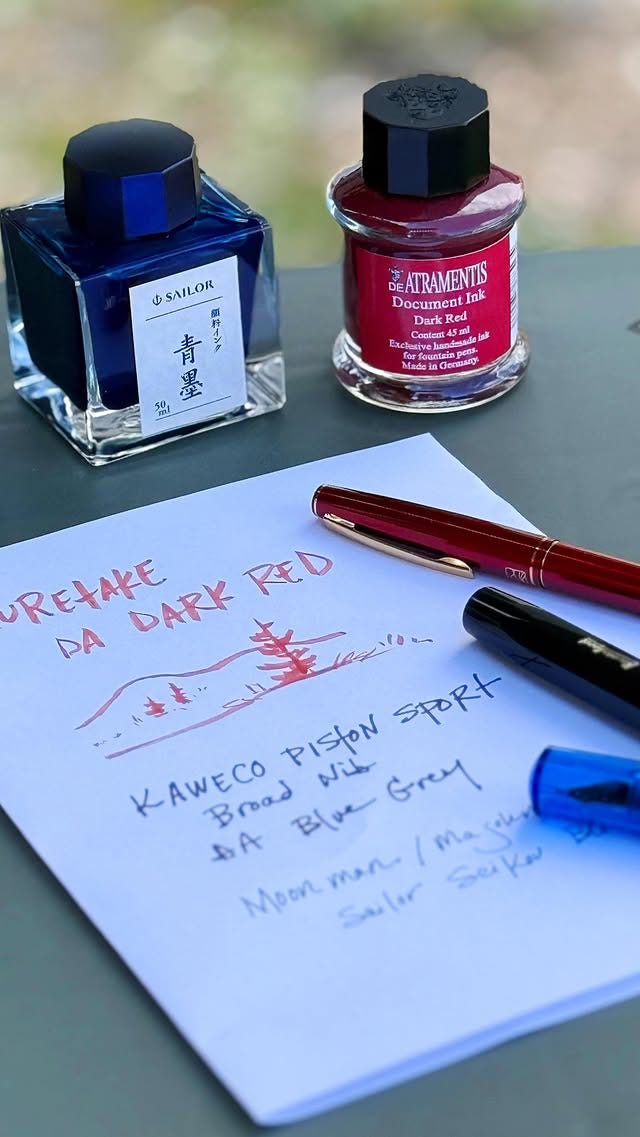 SAILOR
顔料インク
青墨
50
ml
DE ATRAMENTIS
Document Ink
Dark Red
Content 45 ml
Exclusive handmade ink
for fountain pens.
Made in Germany.
URETAKE
DA DARK RED
KAWECO PISTON SPORT
Broad Nib
DA Blue Grey
Moonman /
Sailor Seiboku